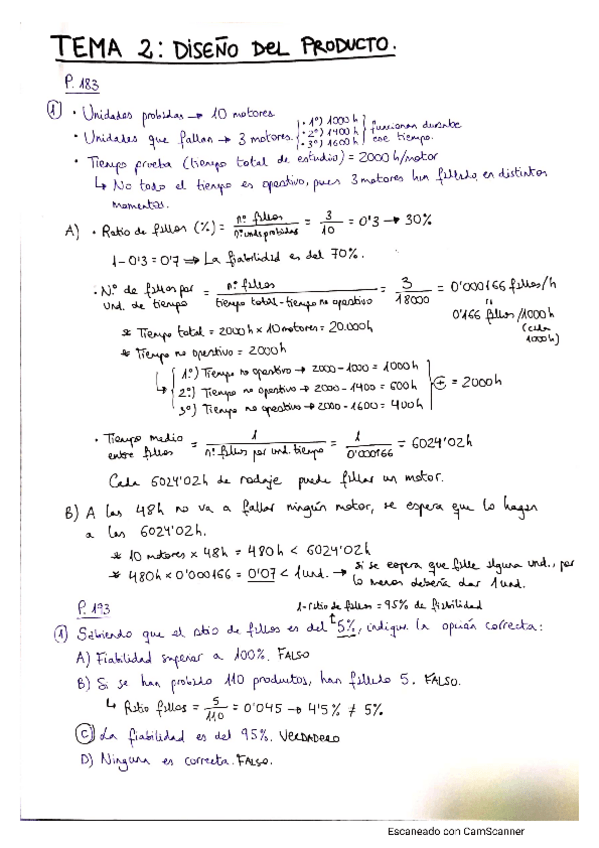 TEMA 2: DISEÑO DEL PRODUCTO.
P. 183
① • Unidades probadas → 10 motores
• Unidades que fallan → 3 motores. { • 1º) 1000 h • 2º) 1400 h • 3º) 1600 h } funcionan durante ese tiempo.
• Tiempo prueba (tiempo total de estudio) = 2000 h/motor
↳ No todo el tiempo es operativo, pues 3 motores han fallado en distintos
momentos.
A) • Ratio de fallos (%) = nº fallos / nº unds probadas = 3/10 = 0'3 → 30%
1 - 0'3 = 0'7 ⇒ La fiabilidad es del 70%.
• N.º de fallos por und. de tiempo = nº fallos / tiempo total - tiempo no operativo = 3/18000 = 0'000166 fallos/h
" 0'166 fallos/1000h (cada 1000h)
* Tiempo total = 2000h x 10 motores = 20.000h
* Tiempo no operativo = 2000h
↳ 1º) Tiempo no operativo → 2000 - 1000 = 1000h
2º) Tiempo no operativo → 2000 - 1400 = 600h ⊕ = 2000h
3º) Tiempo no operativo → 2000 - 1600 = 400h
• Tiempo medio entre fallos = 1 / nº fallos por und. tiempo = 1 / 0'000166 = 6024'02h
Cada 6024'02h de rodaje puede fallar un motor.
B) A las 48h no va a fallar ningún motor, se espera que lo hagan
a las 6024'02h.
* 10 motores x 48h = 480h < 6024'02h
* 480h x 0'000166 = 0'07 < 1 und. → si se espera que falle alguna und., por
lo menos debería dar 1 und.
P. 193
1 - ratio de fallos = 95% de fiabilidad
① Sabiendo que el ratio de fallos es del 5%, indique la opción correcta:
A) Fiabilidad superior a 100%. FALSO
B) Si se han probado 110 productos, han fallado 5. FALSO.
↳ Ratio fallos = 5/110 = 0'045 → 4'5% ≠ 5%
C) La fiabilidad es del 95%. VERDADERO
D) Ninguna es correcta. FALSO.
Escaneado con CamScanner